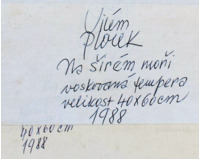 Vilém
Plocek
Na šírém moři
voskovaná tempera
velikost 40x60cm
1988
40x60cm
1988